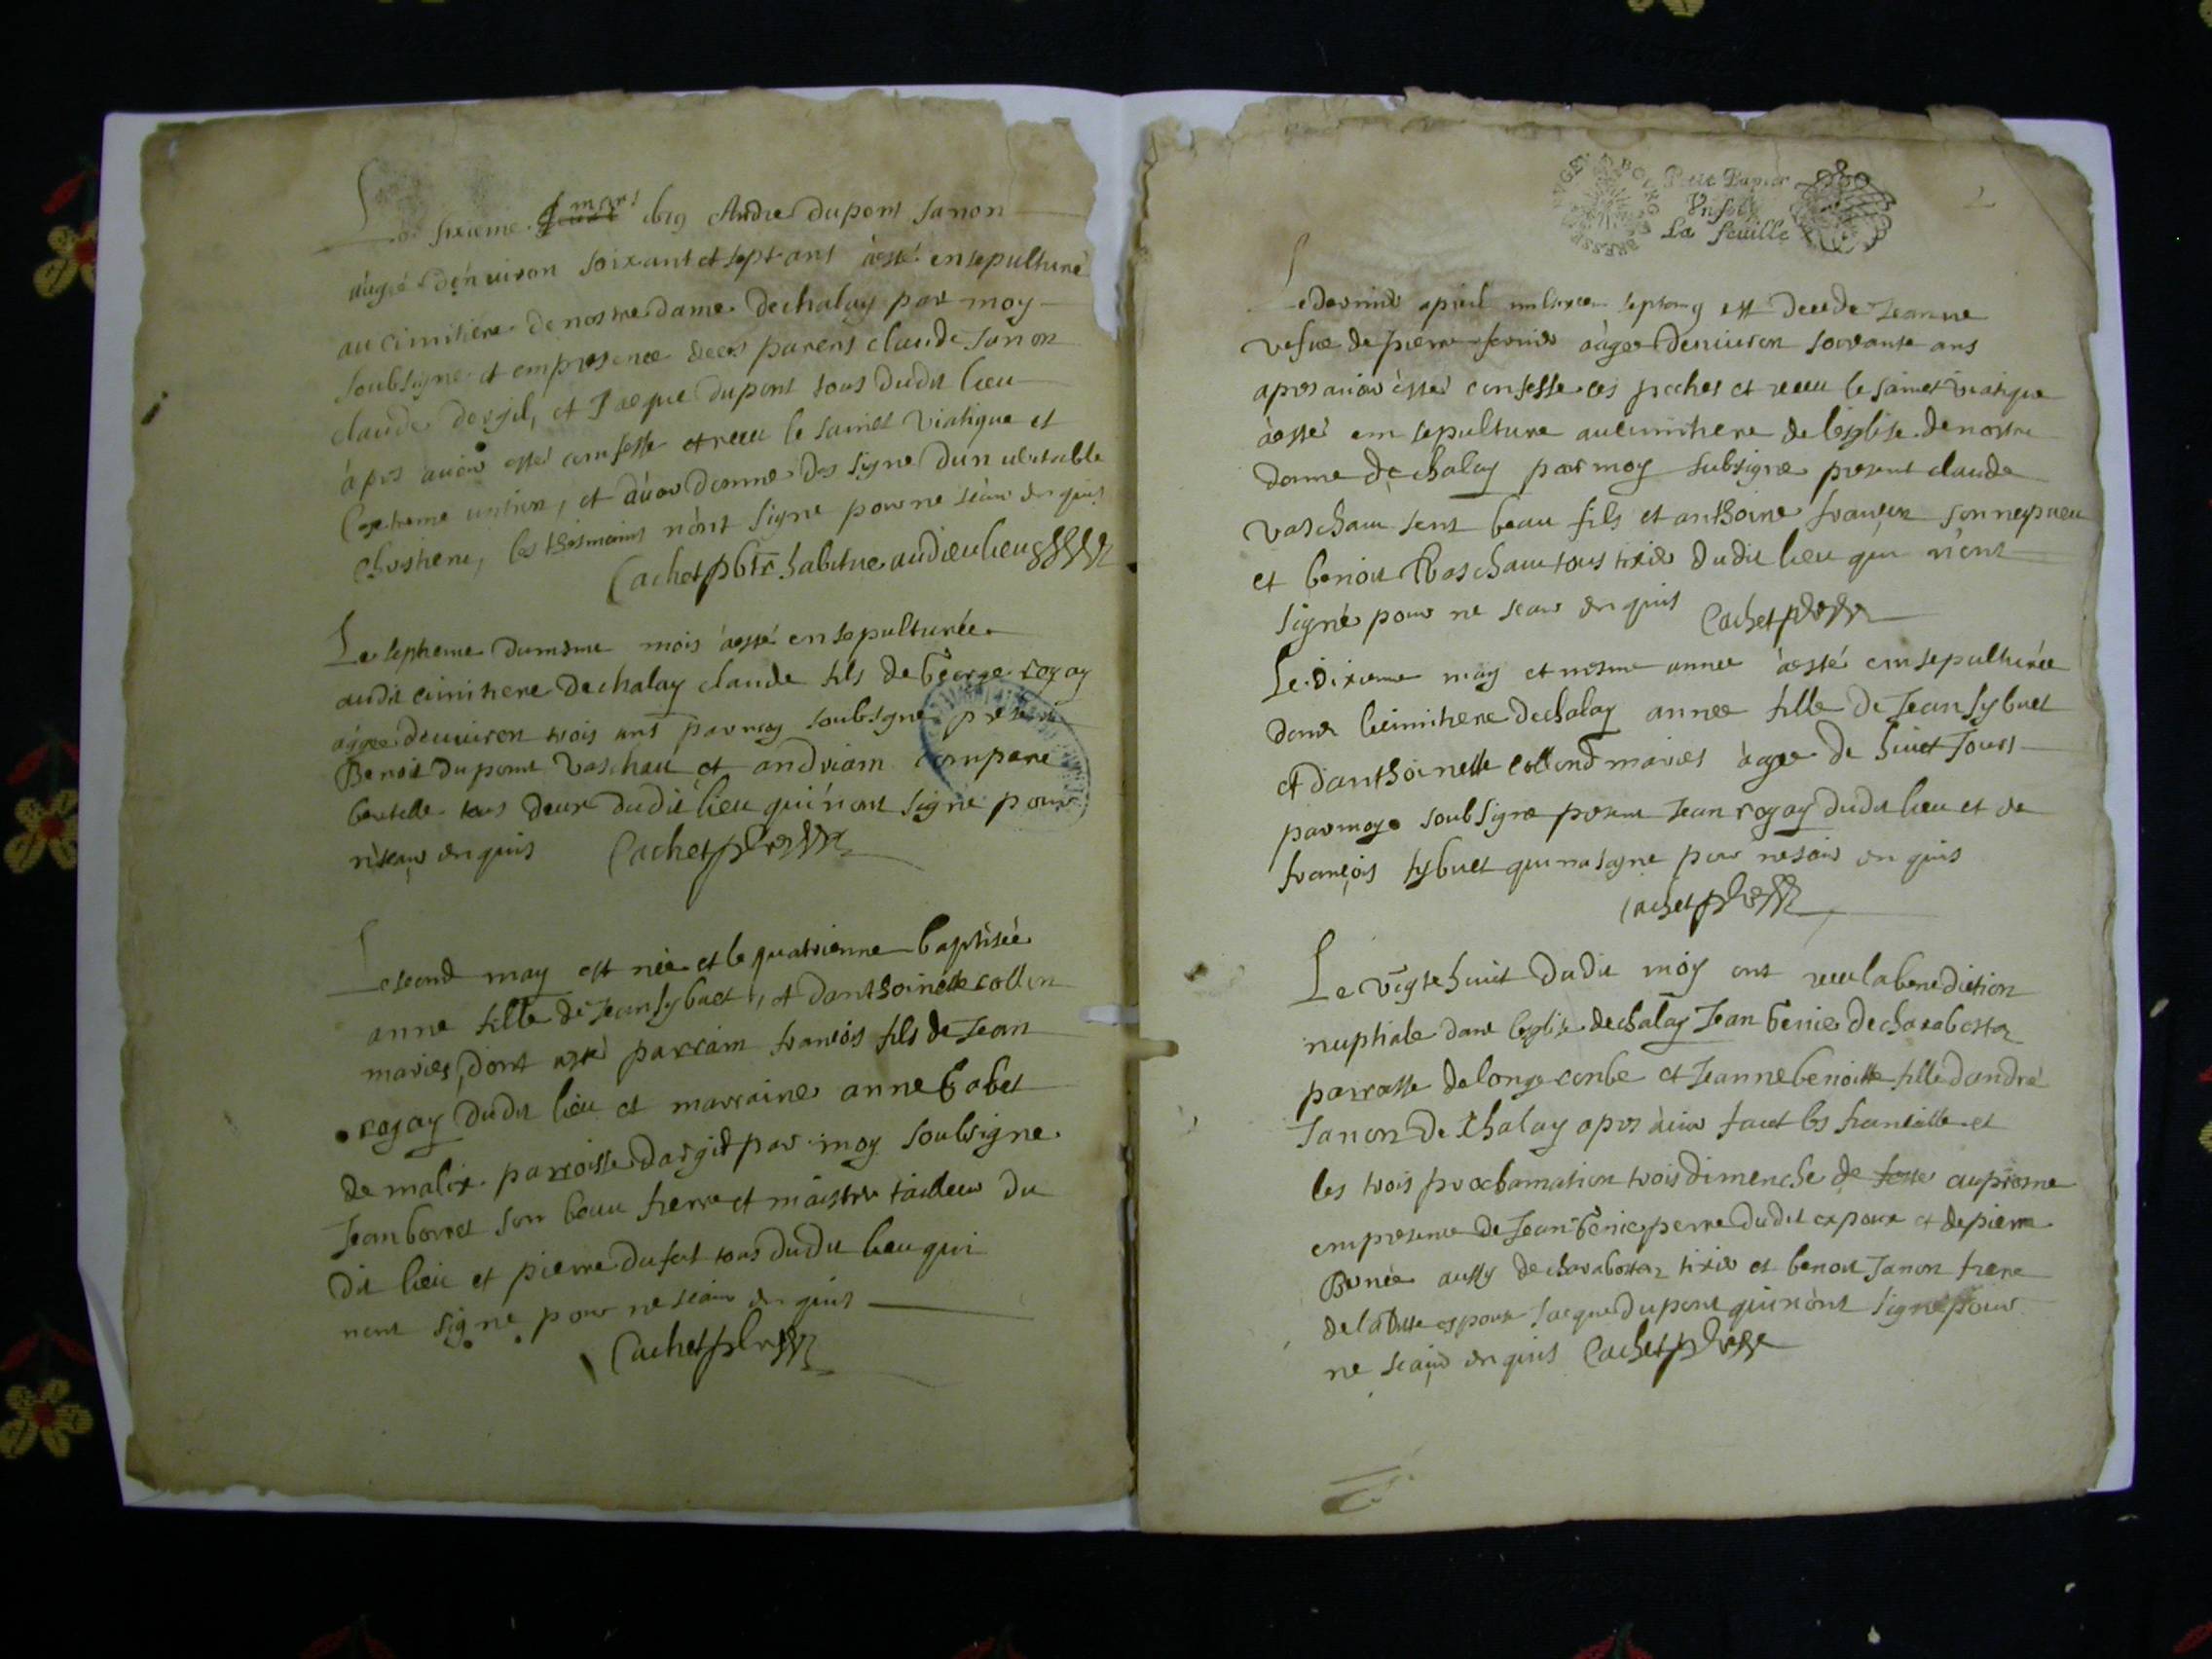 Le sixieme mars 1679 Andre dupont Janon
àugé d'enuiron soixant et sept ans àesté ensepulturé
au cimitiere de nostre dame dechalay par moy
soubsigne et empresence de ces parens claude Janon
claude dorjil, et Jacque dupont tous dudit lieu
àpres auoir esté comfesse et receu le sainct viatique et
lextreme untion, et àuoir donné des signe dun ueritable
chrestiens, les thesmoins n'ont signe pour ne scauoir enquis
Cachet pbtr habitue audieu lieu
Le septieme dumesme mois àesté ensepulturée
audit cimitiere dechalay claude fils de George rogay
àgee denuiron trois ans par moy soubsigne present
Benoit dupont vaschau et andriam compare
tous deux dudit lieu qui n'ont signe pour
n'scauoir enquis Cachet pbr
Le second may est née et le quatrienne baptisée
anne fille de Jean sybuet, et danthoinette collon
maries, dont esté parrain francois fils de Jean
rogay dudit lieu et marraine anne Gobet
de malix parroisse dargit par moy soubsigne
Jean borret son beau frerre et maistre tailleur du
dit lieu et pierre dufort tous dudit lieu qui
nont signe pour ne scauoir enquis
Cachet pbr
BOURG BRESSE BUGEY
Petit Papier
Un sol
La feuille
2
Le dernier apvril milsixcen septante 9 est decede Jeanne
vefue de pierre fornier àgee denuiron soixante ans
apres auoir esté confesse ces peches et receu le sainct viatique
àesté em sepulture au cimithere de leglise de nostre
dame de chalay par moy subsigne present claude
vaschau sont beau fils et anthoine francon son nepueu
et benoit vaschau tous tixier dudit lieu qui n'ont
signé pour ne scauoir enquis Cachet pbr
Le dixieme may et mesme annee àesté emsepulturée
dans le cimithere dechalay annee fille de Jean sybuet
et danthoinette collond maries àgee de huict Jours
par moy soubsigne present Jean rogay dudit lieu et de
françois sybuet qui na signe pour ne scauoir enquis
Cachet pbr
Le vingt huict dudit moy ont receu la benediction
nuptiale dans leglise dechalay Jean Genie decharabotta
parrasse de longe conbe et Jeanne benoitte fille dandré
Janon de Chalay apres àuoir faict les fiansaille et
les trois proclamation trois dimenche de feste auprosne
empresence de Jean Genie perre dudit expoux et de pierre
aussy de charabottaz tixier et benoit Janon frere
de la ditte espouse Jacque dupont qui n'ont signé pour
ne scauoir enquis Cachet pbr